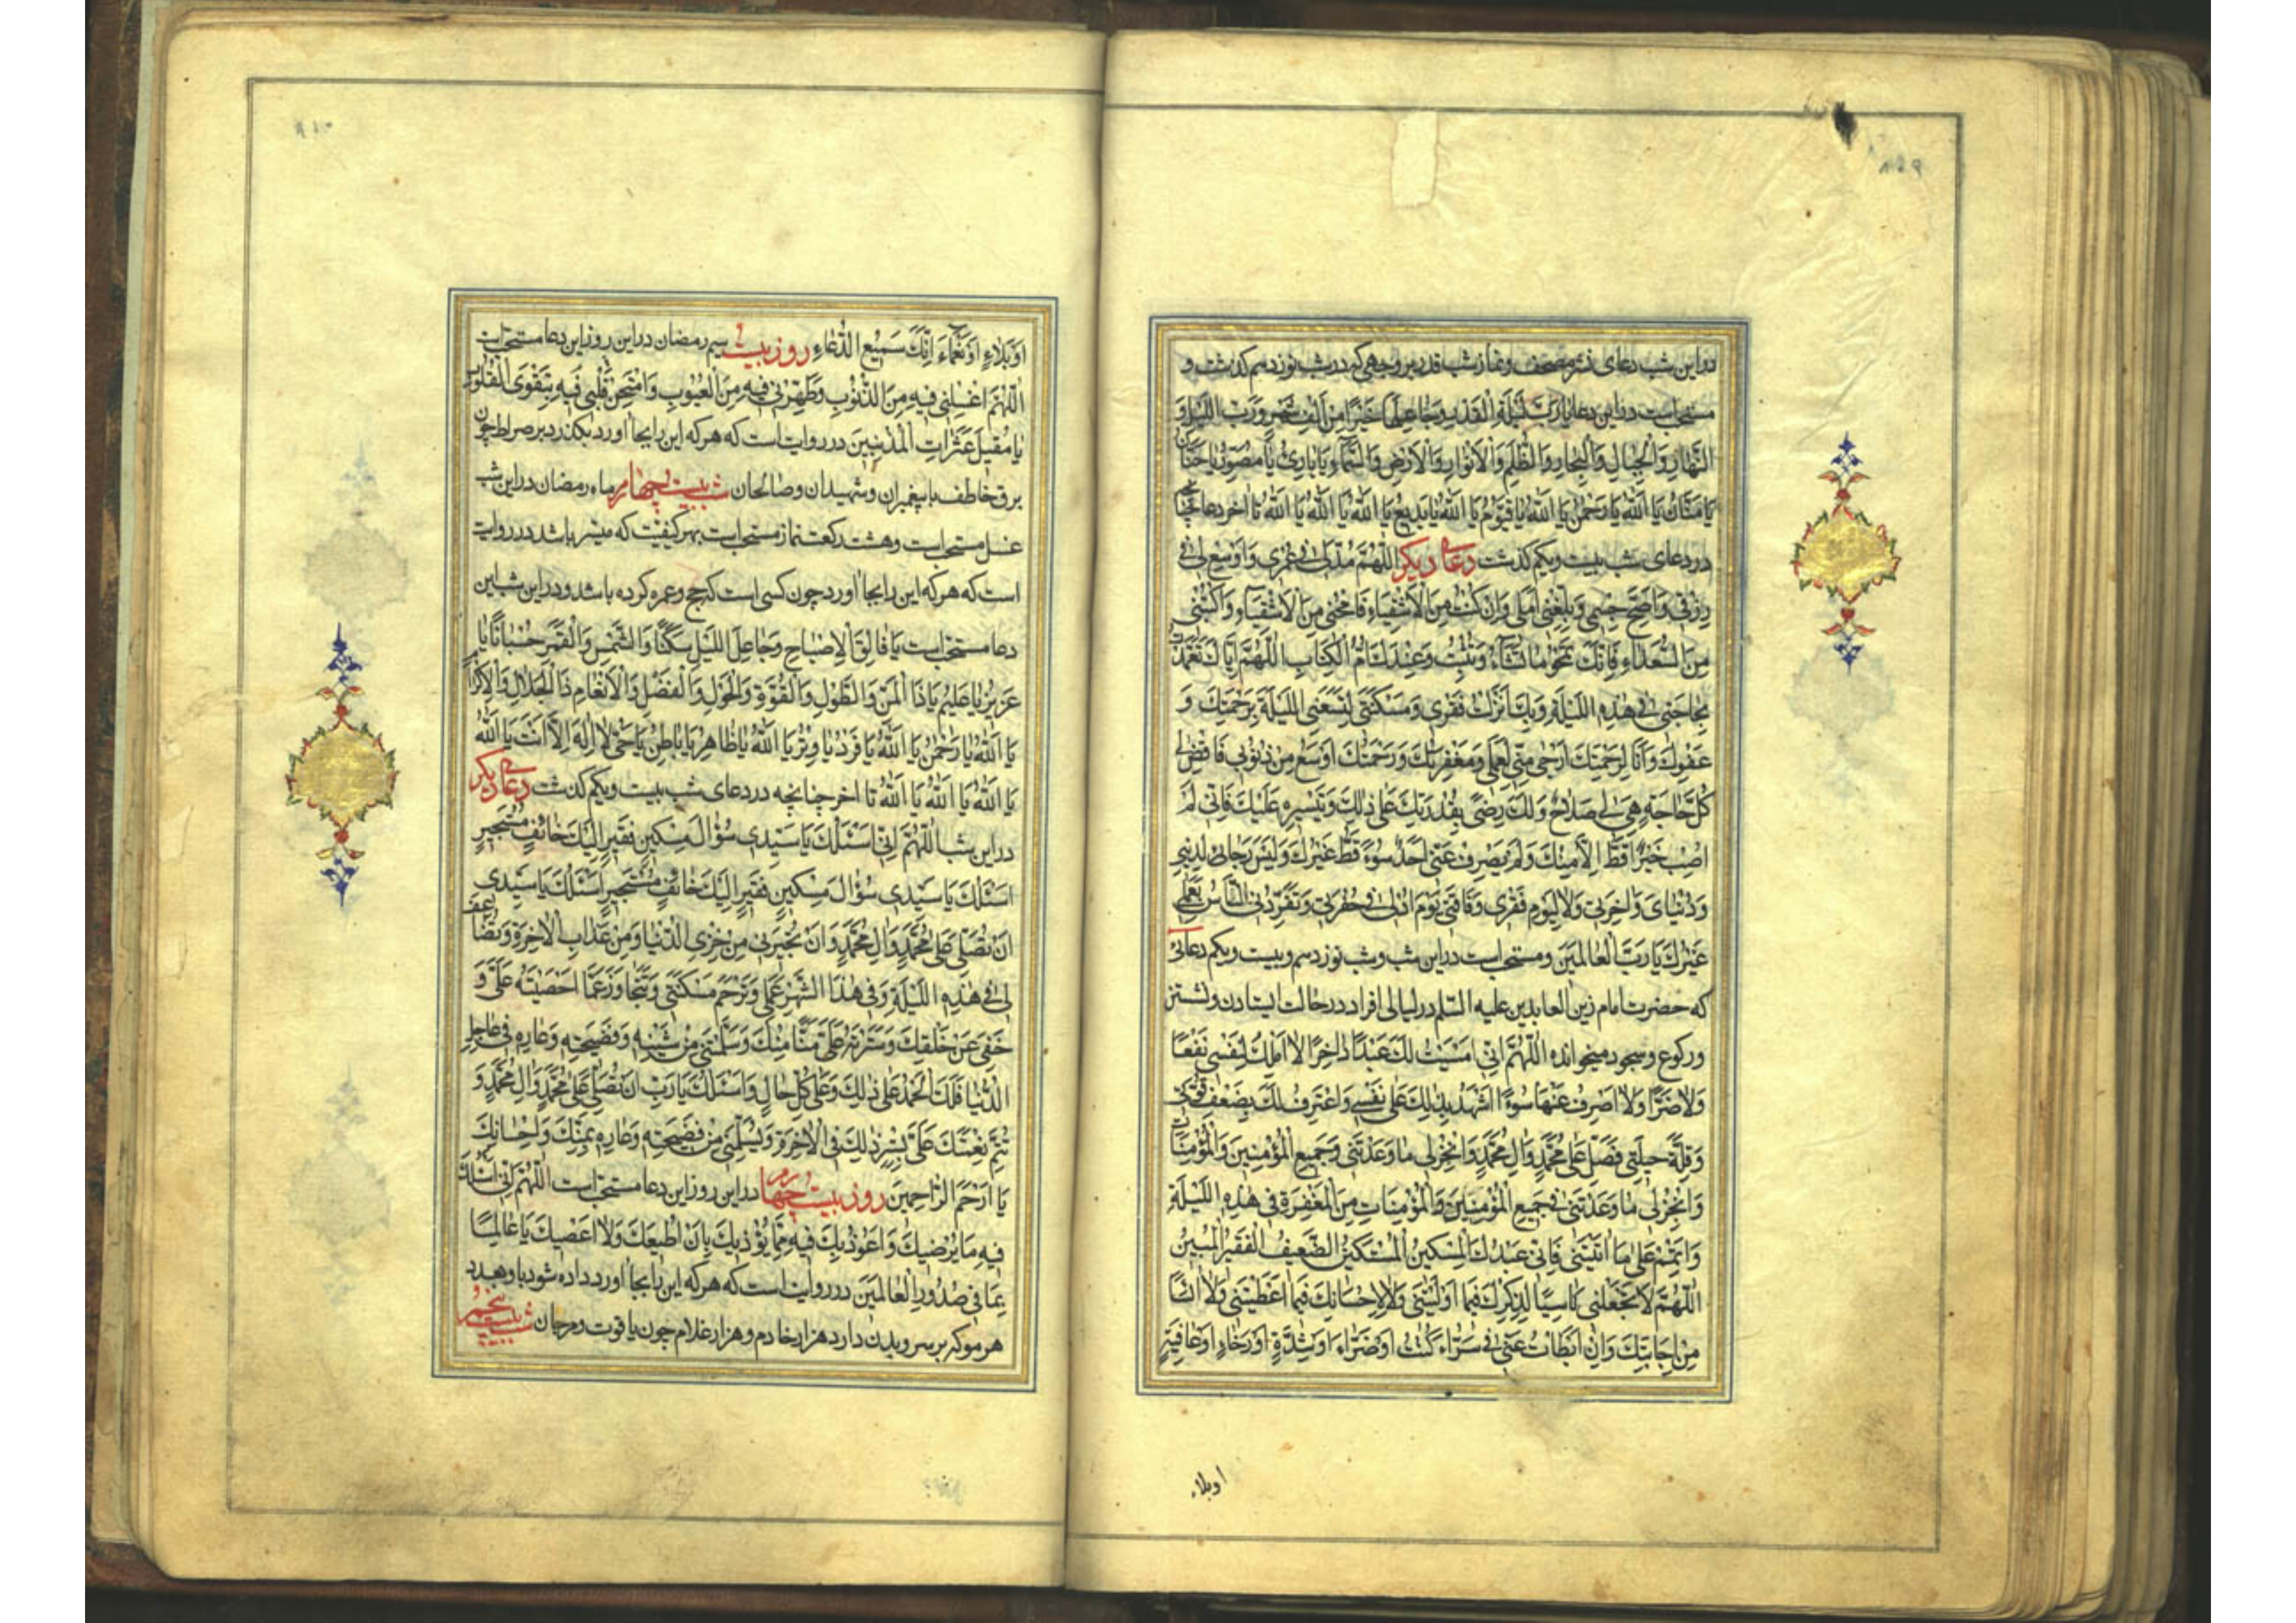 در این شب دعای نشر مصحف و نماز شب قدر بر وجهی که در شب نوزدهم کذشت و
مستحب است در این دعا یَا رَبَّ لَیْلَةِ الْقَدْرِ وَجَاعِلَهَا خَیْرًا مِنْ اَلْفِ شَهْرٍ وَرَبَّ اللَّیْلِ وَ
النَّهَارِ وَالْجِبَالِ وَالْبِحَارِ وَالظُّلَمِ وَالْاَنْوَارِ وَالْاَرْضِ وَالسَّمَاءِ یَا بَارِئُ یَا مُصَوِّرُ یَا حَنَّانُ
یَا مَنَّانُ یَا اَللّٰهُ یَا رَحْمٰنُ یَا اَللّٰهُ یَا قَیُّومُ یَا اَللّٰهُ یَا بَدِیعُ یَا اَللّٰهُ یَا اَللّٰهُ یَا اَللّٰهُ تا آخر دعا چنانچه
در دعای شب بیست ویکم کذشت دعای دیکر اَللّٰهُمَّ مُدَّ لِی فِی عُمْرِی وَاَوْسِعْ لِی فِی
رِزْقِی وَاَصِحَّ جِسْمِی وَبَلِّغْنِی اَمَلِی وَاِنْ کُنْتُ مِنَ الْاَشْقِیَاءِ فَامْحُنِی مِنَ الْاَشْقِیَاءِ وَاکْتُبْنِی
مِنَ السُّعَدَاءِ فَاِنَّکَ تَمْحُو مَا تَشَاءُ وَتُثْبِتُ وَعِنْدَکَ اُمُّ الْکِتَابِ اَللّٰهُمَّ اِیَّاکَ تَعَمَّدْتُ
بِحَاجَتِی فِی هٰذِهِ اللَّیْلَةِ وَبِکَ اَنْزَلْتُ فَقْرِی وَمَسْکَنَتِی لِتَسَعَنِی اللَّیْلَةَ بِرَحْمَتِکَ وَ
عَفْوِکَ وَاَنَا لِرَحْمَتِکَ اَرْجٰی مِنِّی لِعَمَلِی وَمَغْفِرَتُکَ وَرَحْمَتُکَ اَوْسَعُ مِنْ ذُنُوبِی فَاقْضِ لِی
کُلَّ حَاجَةٍ هِیَ لِی صَلَاحٌ وَلَکَ رِضًی بِقُدْرَتِکَ عَلٰی ذٰلِکَ وَتَیْسِیرِهِ عَلَیْکَ فَاِنِّی لَمْ
اُصِبْ خَیْرًا قَطُّ اِلَّا مِنْکَ وَلَمْ یَصْرِفْ عَنِّی اَحَدٌ سُوءً قَطُّ غَیْرُکَ وَلَیْسَ رَجَائِی لِدِینِی
وَدُنْیَایَ وَلِاٰخِرَتِی وَلَا لِیَوْمِ فَقْرِی وَفَاقَتِی یَوْمَ اُدْلٰی فِی حُفْرَتِی وَتَفَرَّدَنِی النَّاسُ بِعَمَلِی
غَیْرَکَ یَا رَبَّ الْعَالَمِینَ ومستحب است در این شب وشب نوزدهم وبیست ویکم دعائی
که حضرت امام زین العابدین علیه السّلم در لیالی افراد در حالت ایستادن ونشستن
ورکوع وسجود میخوانده اَللّٰهُمَّ اِنِّی اَمْسَیْتُ لَکَ عَبْدًا دَاخِرًا لَا اَمْلِکُ لِنَفْسِی نَفْعًا
وَلَا ضَرًّا وَلَا اَصْرِفُ عَنْهَا سُوءًا اَشْهَدُ بِذٰلِکَ عَلٰی نَفْسِی وَاَعْتَرِفُ لَکَ بِضَعْفِ قُوَّتِی
وَقِلَّةِ حِیلَتِی فَصَلِّ عَلٰی مُحَمَّدٍ وَاٰلِ مُحَمَّدٍ وَانْجِزْ لِی مَا وَعَدْتَنِی وَجَمِیعَ الْمُؤْمِنِینَ وَالْمُؤْمِنَاتِ
وَانْجِزْ لِی مَا وَعَدْتَنِی فِی جَمِیعِ الْمُؤْمِنِینَ وَالْمُؤْمِنَاتِ مِنَ الْمَغْفِرَةِ فِی هٰذِهِ اللَّیْلَةِ
وَاَتْمِمْ عَلَیَّ مَا اٰتَیْتَنِی فَاِنِّی عَبْدُکَ الْمِسْکِینُ الْمُسْتَکِینُ الضَّعِیفُ الْفَقِیرُ الْمُبِینُ
اَللّٰهُمَّ لَا تَجْعَلْنِی نَاسِیًا لِذِکْرِکَ فِیمَا اَوْلَیْتَنِی وَلَا لِاِحْسَانِکَ فِیمَا اَعْطَیْتَنِی وَلَا اٰیِسًا
مِنْ اِجَابَتِکَ وَاِنْ اَبْطَأَتْ عَنِّی فِی سَرَّاءَ کُنْتُ اَوْ ضَرَّاءَ اَوْ شِدَّةٍ اَوْ رَخَاءٍ اَوْ عَافِیَةٍ
اوبلاء
اَوْ بَلَاءٍ اَوْ نَعْمَاءَ اِنَّکَ سَمِیعُ الدُّعَاءِ روز بیست و سیم رمضان در این روز این دعا مستحب است
اَللّٰهُمَّ اغْسِلْنِی فِیهِ مِنَ الذُّنُوبِ وَطَهِّرْنِی فِیهِ مِنَ الْعُیُوبِ وَامْتَحِنْ قَلْبِی فِیهِ بِتَقْوَی الْقُلُوبِ
یَا مُقِیلَ عَثَرَاتِ الْمُذْنِبِینَ در روایت است که هر که این را بجا اورد بکذرد بر صراط چون
برق خاطف با پیغمبران وشهیدان وصالحان شب بیست چهارم ماه رمضان در این شب
غسل مستحب است وهشت رکعت نماز مستحب است بهر کیفیت که میسر باشد در روایت
است که هر که این را بجا اورد چون کسی است که حج وعمره کرده باشد ودر این شب این
دعا مستحب است یَا فَالِقَ الْاِصْبَاحِ وَجَاعِلَ اللَّیْلِ سَکَنًا وَالشَّمْسِ وَالْقَمَرِ حُسْبَانًا یَا
عَزِیزُ یَا عَلِیمُ یَا ذَا الْمَنِّ وَالطَّوْلِ وَالْقُوَّةِ وَالْحَوْلِ وَالْفَضْلِ وَالْاِنْعَامِ ذَا الْجَلَالِ وَالْاِکْرَامِ
یَا اَللّٰهُ یَا رَحْمٰنُ یَا اَللّٰهُ یَا فَرْدُ یَا وِتْرُ یَا اَللّٰهُ یَا ظَاهِرُ یَا بَاطِنُ یَا حَیُّ لَا اِلٰهَ اِلَّا اَنْتَ یَا اَللّٰهُ
یَا اَللّٰهُ یَا اَللّٰهُ یَا اَللّٰهُ تا اخر چنانچه در دعای شب بیست ویکم کذشت دعای دیکر
در این شب اَللّٰهُمَّ اِنِّی اَسْئَلُکَ یَا سَیِّدِی سُؤَالَ مِسْکِینٍ فَقِیرٍ اِلَیْکَ خَائِفٍ مُسْتَجِیرٍ
اَسْئَلُکَ یَا سَیِّدِی سُؤَالَ مِسْکِینٍ فَقِیرٍ اِلَیْکَ خَائِفٍ مُسْتَجِیرٍ اَسْئَلُکَ یَا سَیِّدِی
اَنْ تُصَلِّیَ عَلٰی مُحَمَّدٍ وَاٰلِ مُحَمَّدٍ وَاَنْ تُجِیرَنِی مِنْ خِزْیِ الدُّنْیَا وَمِنْ عَذَابِ الْاٰخِرَةِ وَتُضَاعِفَ
لِی فِی هٰذِهِ اللَّیْلَةِ وَفِی هٰذَا الشَّهْرِ عَمَلِی وَتَرْحَمَ مَسْکَنَتِی وَتَتَجَاوَزَ عَمَّا اَحْصَیْتَهُ عَلَیَّ وَ
خَفِیَ عَنْ خَلْقِکَ وَسَتَرْتَهُ عَلَیَّ مَنًّا مِنْکَ وَسَلَّمْتَنِی مِنْ شَیْنِهِ وَفَضِیحَتِهِ وَعَارِهِ فِی عَاجِلِ
الدُّنْیَا فَلَکَ الْحَمْدُ عَلٰی ذٰلِکَ وَعَلٰی کُلِّ حَالٍ وَاَسْئَلُکَ یَا رَبِّ اَنْ تُصَلِّیَ عَلٰی مُحَمَّدٍ وَاٰلِ مُحَمَّدٍ وَ
تُتِمَّ نِعْمَتَکَ عَلَیَّ بِسَتْرِ ذٰلِکَ فِی الْاٰخِرَةِ وَتُسَلِّمَنِی مِنْ فَضِیحَتِهِ وَعَارِهِ بِمَنِّکَ وَاِحْسَانِکَ
یَا اَرْحَمَ الرَّاحِمِینَ روز بیست چهارم در این روز این دعا مستحب است اَللّٰهُمَّ اِنِّی اَسْئَلُکَ
فِیهِ مَا یُرْضِیکَ وَاَعُوذُ بِکَ فِیهِ مِمَّا یُؤْذِیکَ بِاَنْ اُطِیعَکَ وَلَا اَعْصِیَکَ یَا عَالِمًا
بِمَا فِی صُدُورِ الْعَالَمِینَ در روایت است که هر که این را بجا اورد داده شود باو بعدد
هر مو که بر سر وبدن دارد هزار خادم وهزار غلام چون یاقوت ومرجان شب بیست پنجم